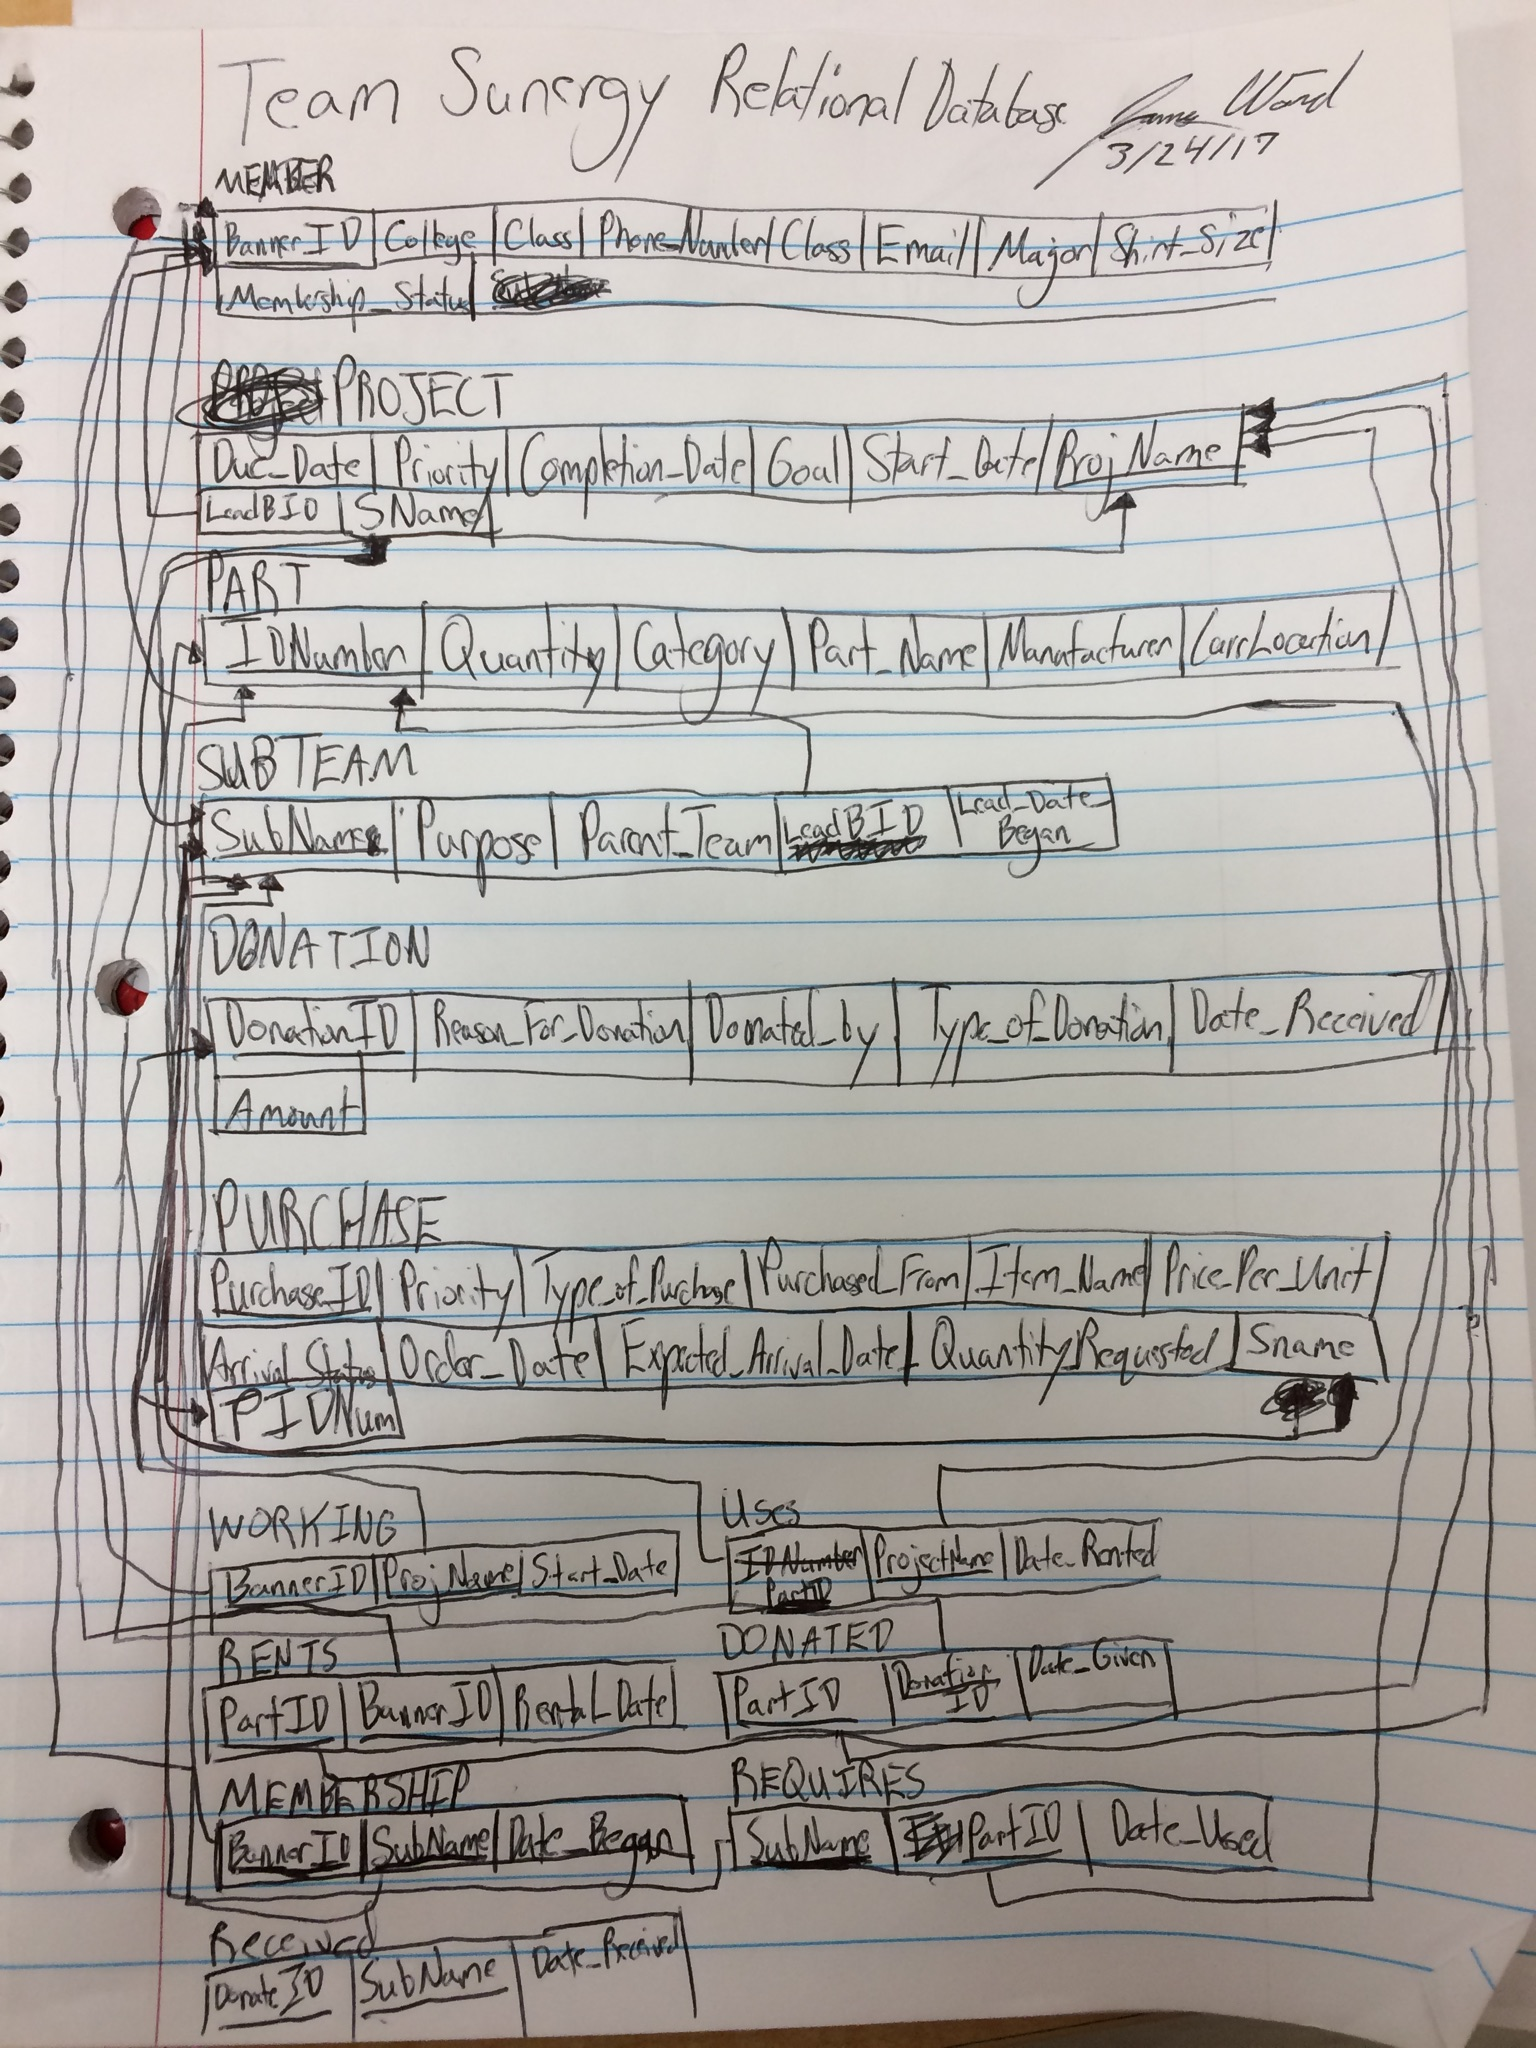 Team Sunergy Relational Database
Ward
3/24/17
MEMBER
BannerID College Class Phone_Number Class Email Major Shirt_Size
Membership_Status
PROJECT
Due_Date Priority Completion_Date Goal Start_Date ProjName
LeadBID SName
PART
IDNumber Quantity Category Part_Name Manufacturer
SUBTEAM
SubName Purpose Parent_Team LeadBID Lead_Date_
Began
DONATION
DonationID Reason_For_Donation Donated_by Type_of_Donation Date_Received
Amount
PURCHASE
PurchaseID Priority Type_of_Purchase Purchased_From Item_Name Price_Per_Unit
Arrival_Status Order_Date Expected_Arrival_Date Quantity_Requested Sname
PIDNum
WORKING
BannerID ProjName Start_Date
Uses
IDNumber ProjectName Date_Rented
PartID
RENTS
PartID BannerID Rental_Date
DONATED
PartID Donation Date_Given
ID
MEMBERSHIP
BannerID SubName Date_Began
REQUIRES
SubName PartID Date_Used
Received
DonateID SubName Date_Received